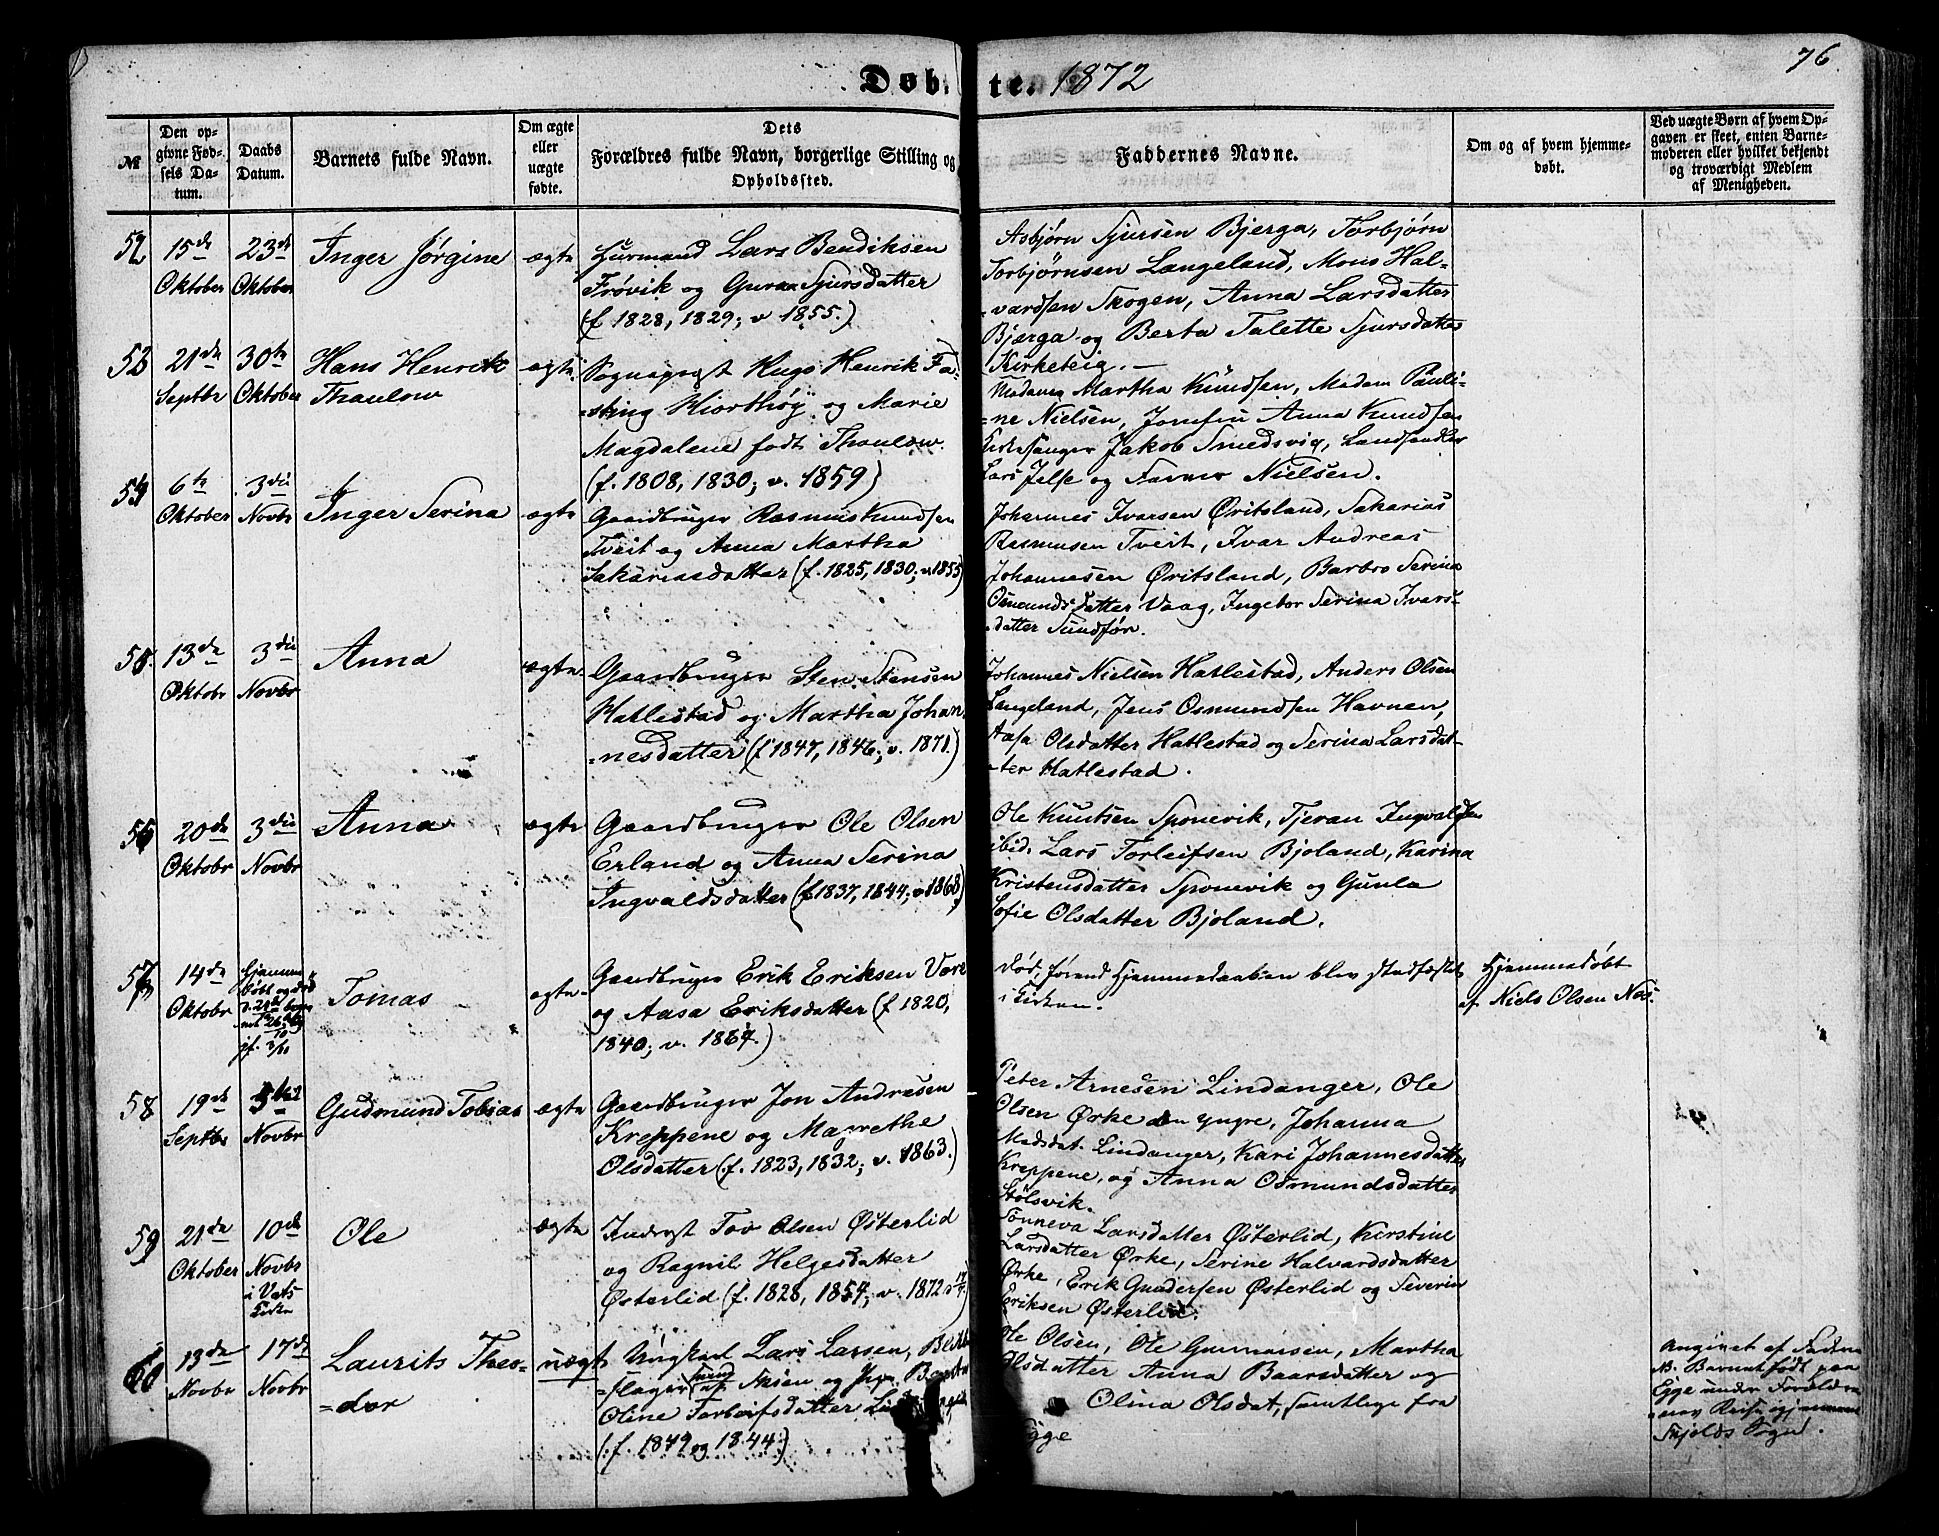 76.
Døbte. 1872
№
Den op-
givne Fød-
sels Da-
tum.
Daabs
Datum.
Barnets fulde Navn.
Om ægte
eller
uægte
fødte.
Dets
Forældres fulde Navn, borgerlige Stilling og
Opholdssted.
Faddernes Navne.
Om og af hvem hjemme-
døbt.
Ved uægte Børn af hvem Op-
gaven er skeet, enten Barne-
moderen eller hvilket bekjendt
og troværdigt Medlem
af Menigheden.
52
15de
Oktober
23de
Oktober
Inger Jørgine
ægte
Huusmand Lars Bendiksen
Frøvik og Guron Sjursdatter
(f. 1828, 1829; v 1855.)
Asbjørn Sjursen Bjerga, Torbjørn
Torbjørnsen Langeland, Mons Hal-
-vardsen Skogen, Anna Larsdatter
Bjerga og Berta Talette Sjursdatter
Kirketeig. —
53
21de
Septbr
30te
Oktober
Hans Henrik
Thaulow
ægte
Sognepræst Hugo Henrik Fa-
-sting Hiorthøy og Marie
Magdalene født Thaulow.
(f. 1808, 1830; v. 1859)
Madame Martha Knudsen, Madam Pauli-
-ne Nielsen, Jomfru Anna Knudsen
Kirkesanger Jakob Smedsvig, Landhandler
Lars Jelse og Farver Nielsen.
54
6te
Oktober
3die
Novbr
Inger Serina
ægte
Gaardbruger Rasmus Knudsen
Tveit og Anna Martha
Sakariasdatter (f. 1825, 1830; v. 1855)
Johannes Ivarsen Øritsland, Sakarias
Rasmusen Tveit, Ivar Andreas
Johannesen Øritsland, Barbro Serina
Osmundsdatter Vaag, Ingebor Serina Ivars-
-datter Sundfør.
55.
13de
Oktobr
3die
Novbr
Anna
ægte.
Gaardbruger Sten Stensen
Hatlestad og Martha Johan-
-nesdatter (f 1847, 1846; v. 1871.)
Johannes Nielsen Hatlestad, Anders Olsen
Langeland, Jens Osmundsen Havnen,
Aasa Olsdatter Hatlestad og Serina Larsdat-
-ter Hatlestad.
56
20de
Oktobr
3die
Novbr
Anna
ægte
Gaardbruger Ole Olsen
Erland og Anna Serina
Ingvaldsdatter (f. 1837, 1844; v. 1868)
Ole Knutsen Sponevik, Tjeran Ingvaldsen
ibid. Lars Torleifsen Bjoland, Karina
Kristensdatter Sponevik og Gunla
Sofie Olsdatter Bjoland.
57
14de
Oktobr
Tomas
ægte.
Gaardbruger Erik Eriksen Vore
og Aasa Eriksdatter (f 1820,
1840; v. 1867.)
Død, førend Hjemmedaaben blev stadfæstet
i Kirken.
Hjemmedøbt
af Niels Olsen Nes.
58
19de
Septbr
Novbr
Gudmund Tobias
ægte
Gaardbruger Jon Andresen
Kreppene og Marethe
Olsdatter (f. 1823, 1832; v. 1863.)
Peter Arnesen Lindanger, Ole
Olsen Ørke den yngre, Johanna
Madsdat. Lindanger, Kari Johannesdatter
Kreppene, og Anna Osmundsdatter
Stølsvik.
59
21de
Oktober
10de
Novbr
i Vats
Kirke
Ole
ægte
Inderst Tov Olsen Østerlid
og Ragnil Helgesdatter
Østerlid (f. 1828, 1854; v. 1872
Tonneva Larsdatter Østerlid, Kirstine
Larsdatter Ørke, Serine Halvardsdatter
Ørke, Erik Gundersen Østerlid og Severin
Eriksen Østerlid.
60
13de
Novbr
17de
Novbr
Laurits Theo-
-dor
uægte
Ungkarl Lars Larsen, Blikken-
-slager og Pige
Oline Torbeifsdatter
(: f. 1849 og 1844:)
Ole Olsen, Ole Gunnarsen, Martha
Olsdatter Anna Baarsdatter og
Olina Olsdat, samtlige fra
Egge
Angivet af Faderen
NB. Barnet født paa
Egge under Forældre-
-nes Reise gjennem
Skjolds Sogn.